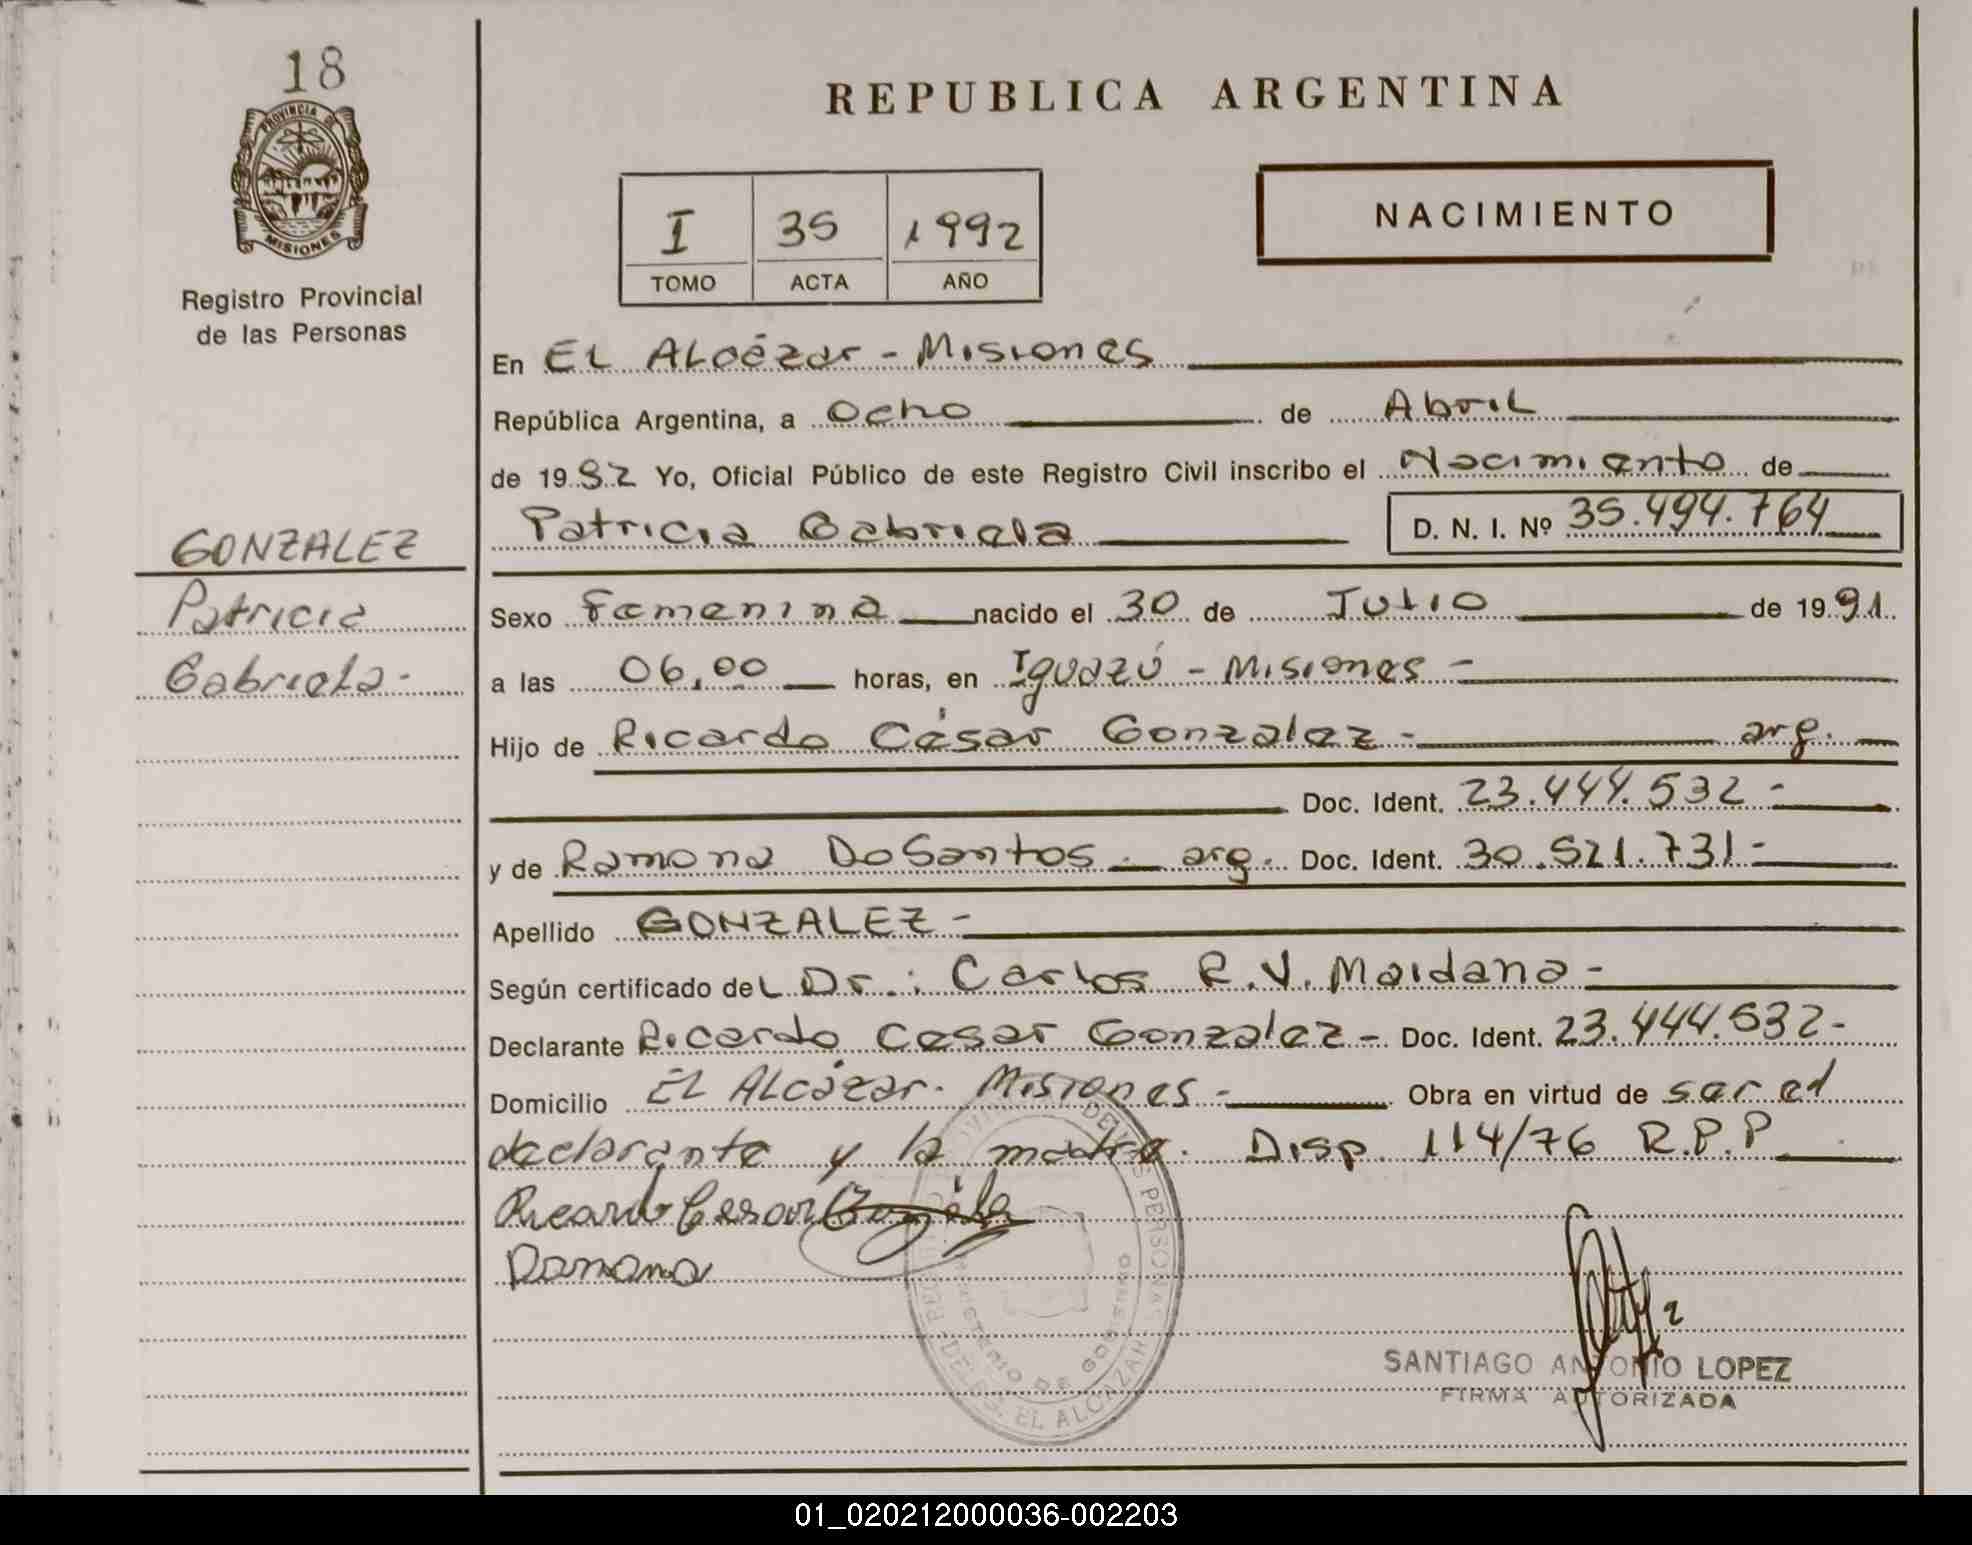 18
PROVINCIA DE
MISIONES
Registro Provincial
de las Personas
REPUBLICA ARGENTINA
I 35 1992
TOMO ACTA AÑO
NACIMIENTO
En EL Alcázar - Misiones
República Argentina, a Ocho de Abril
de 1992 Yo, Oficial Público de este Registro Civil inscribo el Nacimiento de
Patricia Gabriela D. N. I. Nº 35.494.764
GONZALEZ
Patricia
Gabriela.-
Sexo Femenina nacido el 30 de Julio de 1991
a las 06,00 horas, en Iguazú - Misiones -
Hijo de Ricardo César Gonzalez - arg.
Doc. Ident. 23.444.532 -
y de Ramona DoSantos. arg. Doc. Ident. 30.521.731 -
Apellido GONZALEZ -
Según certificado del Dr.: Carlos R.V. Maidana -
Declarante Ricardo Cesar Gonzalez - Doc. Ident. 23.444.532 -
Domicilio EL Alcázar. Misiones - Obra en virtud de ser el
declarante y la madre. Disp. 114/76 R.P.P
Ricardo Cesar Gonzalez
Ramona
DE LAS PERSONAS
MINISTERIO DE GOBIERNO
DELEG. EL ALCAZAR
SANTIAGO ANTONIO LOPEZ
FIRMA AUTORIZADA
01_020212000036-002203